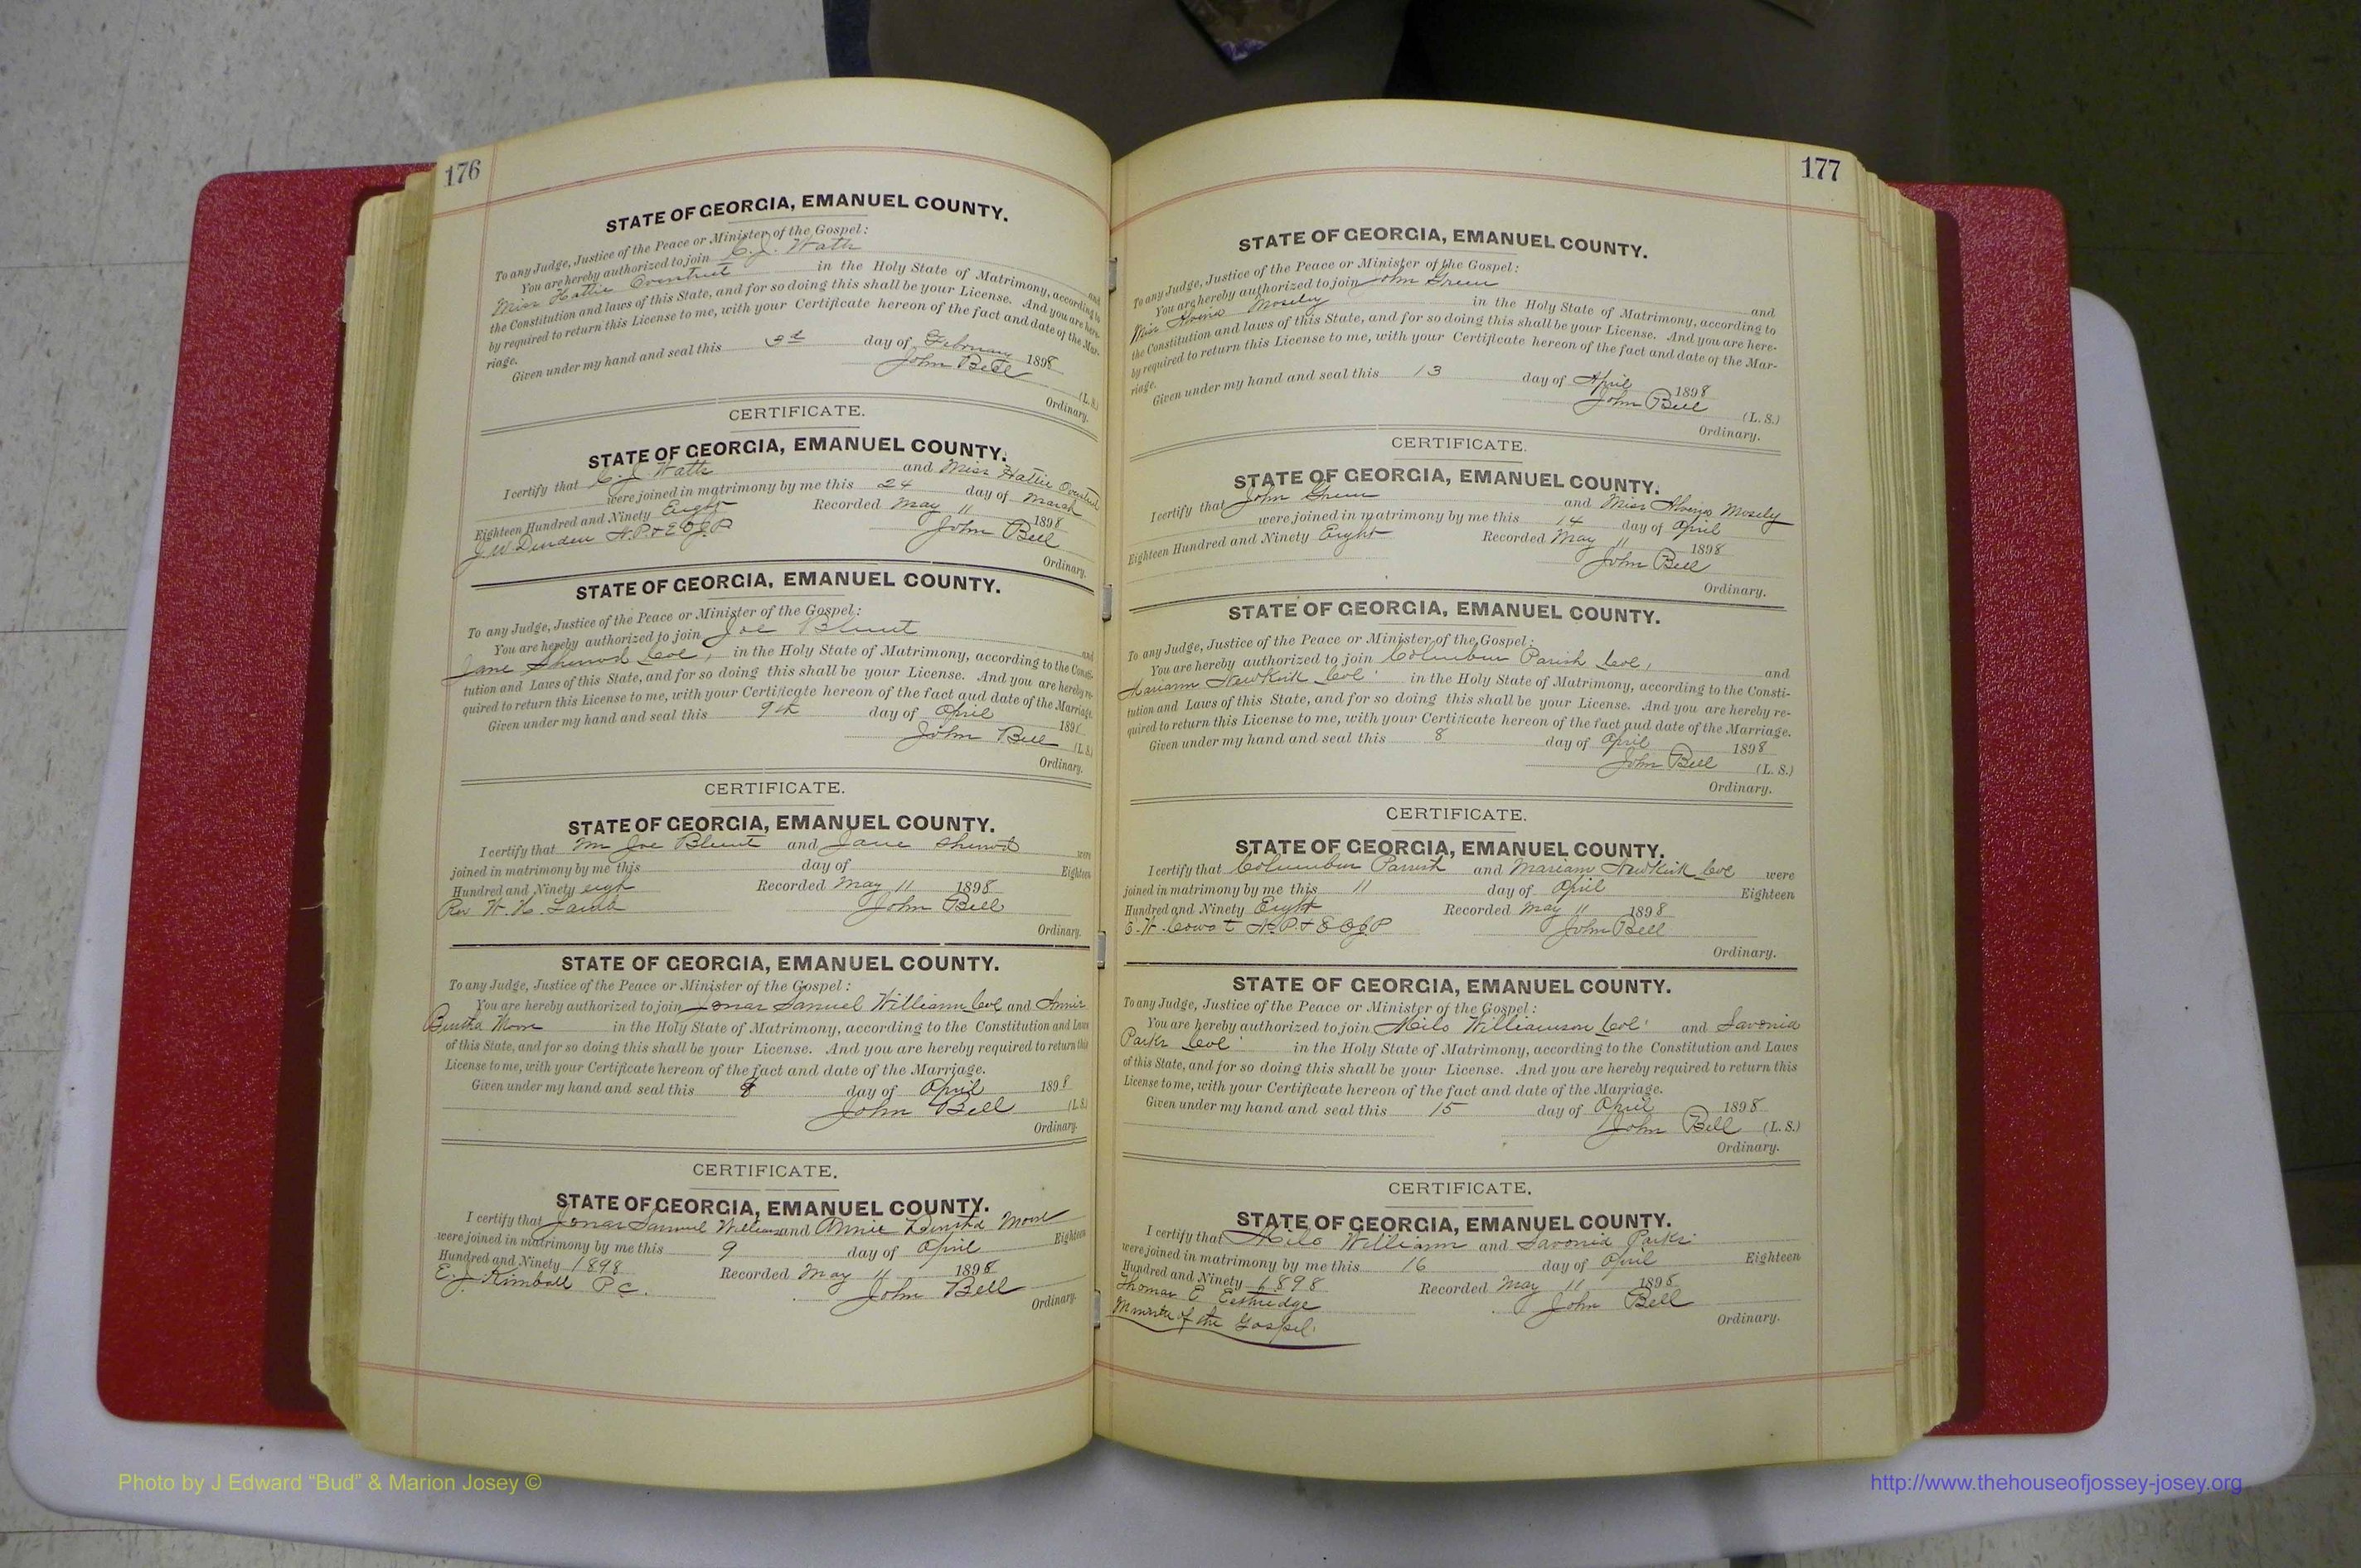 176
STATE OF GEORGIA, EMANUEL COUNTY.
To any Judge, Justice of the Peace or Minister of the Gospel:
You are hereby authorized to join C. J. Watts and
Miss Hattie Overstreet in the Holy State of Matrimony, according to
the Constitution and laws of this State, and for so doing this shall be your License. And you are here-
by required to return this License to me, with your Certificate hereon of the fact and date of the Mar-
riage.
Given under my hand and seal this 3d day of February 1898
John Bell (L. S.)
Ordinary.
CERTIFICATE.
STATE OF GEORGIA, EMANUEL COUNTY.
I certify that C. J. Watts and Miss Hattie Overstreet
were joined in matrimony by me this 24 day of March
Eighteen Hundred and Ninety Eight Recorded May 11 1898
J W Durden N. P. & E O J. P John Bell
Ordinary.
STATE OF GEORGIA, EMANUEL COUNTY.
To any Judge, Justice of the Peace or Minister of the Gospel:
You are hereby authorized to join Joe Blunt and
Jane Sherrod Col, in the Holy State of Matrimony, according to the Consti-
tution and Laws of this State, and for so doing this shall be your License. And you are hereby re-
quired to return this License to me, with your Certificate hereon of the fact and date of the Marriage.
Given under my hand and seal this 9th day of April 1898
John Bell (L. S.)
Ordinary.
CERTIFICATE.
STATE OF GEORGIA, EMANUEL COUNTY.
I certify that Mr Joe Blunt and Jane Sherrod were
joined in matrimony by me this day of Eighteen
Hundred and Ninety eigh Recorded May 11 1898
Rev W. H. Lamb John Bell
Ordinary.
STATE OF GEORGIA, EMANUEL COUNTY.
To any Judge, Justice of the Peace or Minister of the Gospel:
You are hereby authorized to join Jonas Samuel Williams Col and Annie
Bertha Moore in the Holy State of Matrimony, according to the Constitution and Laws
of this State, and for so doing this shall be your License. And you are hereby required to return this
License to me, with your Certificate hereon of the fact and date of the Marriage.
Given under my hand and seal this 8 day of April 1898
John Bell (L. S.)
Ordinary.
CERTIFICATE.
STATE OF GEORGIA, EMANUEL COUNTY.
I certify that Jonas Samuel Williams and Annie Bertha Moore
were joined in matrimony by me this 9 day of April Eighteen
Hundred and Ninety 1898 Recorded May 11 1898
E. J. Kimball P C. John Bell
Ordinary.
177
STATE OF GEORGIA, EMANUEL COUNTY.
To any Judge, Justice of the Peace or Minister of the Gospel:
You are hereby authorized to join John Green and
Miss Mosely in the Holy State of Matrimony, according to
the Constitution and laws of this State, and for so doing this shall be your License. And you are here-
by required to return this License to me, with your Certificate hereon of the fact and date of the Mar-
riage.
Given under my hand and seal this 13 day of April 1898
John Bell (L. S.)
Ordinary.
CERTIFICATE.
STATE OF GEORGIA, EMANUEL COUNTY.
I certify that John Green and Miss Mosely
were joined in matrimony by me this 14 day of April
Eighteen Hundred and Ninety Eight Recorded May 11 1898
John Bell
Ordinary.
STATE OF GEORGIA, EMANUEL COUNTY.
To any Judge, Justice of the Peace or Minister of the Gospel:
You are hereby authorized to join Columbus Parish Col, and
Mariann NewKirk Col in the Holy State of Matrimony, according to the Consti-
tution and Laws of this State, and for so doing this shall be your License. And you are hereby re-
quired to return this License to me, with your Certificate hereon of the fact and date of the Marriage.
Given under my hand and seal this 8 day of April 1898
John Bell (L. S.)
Ordinary.
CERTIFICATE.
STATE OF GEORGIA, EMANUEL COUNTY.
I certify that Columbus Parrish and Mariann NewKirk Col were
joined in matrimony by me this 11 day of April Eighteen
Hundred and Ninety Eight Recorded May 11 1898
E. W. N. P. & E O J P John Bell
Ordinary.
STATE OF GEORGIA, EMANUEL COUNTY.
To any Judge, Justice of the Peace or Minister of the Gospel:
You are hereby authorized to join Milo Williamson Col and Savonia
Parks Col in the Holy State of Matrimony, according to the Constitution and Laws
of this State, and for so doing this shall be your License. And you are hereby required to return this
License to me, with your Certificate hereon of the fact and date of the Marriage.
Given under my hand and seal this 15 day of April 1898
John Bell (L. S.)
Ordinary.
CERTIFICATE.
STATE OF GEORGIA, EMANUEL COUNTY.
I certify that Milo Williams and Savonia Parks
were joined in matrimony by me this 16 day of April Eighteen
Hundred and Ninety 1898 Recorded May 11 1898
Thomas E Esthridge John Bell
Minister of the Gospel. Ordinary.
Photo by J Edward “Bud” & Marion Josey ©
http://www.thehouseofjossey-josey.org